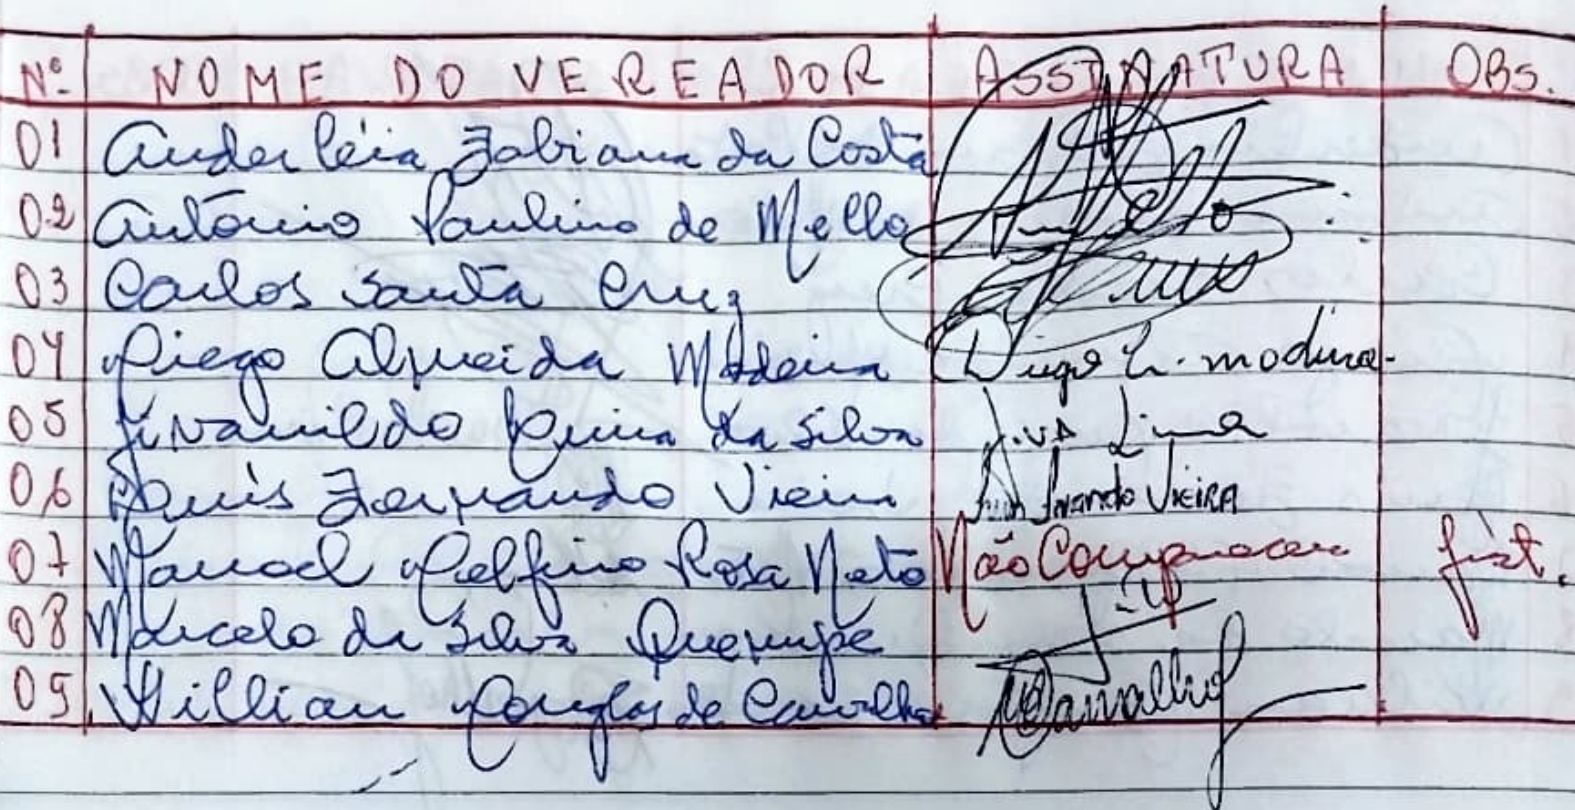 Nº NOME DO VEREADOR ASSINATURA OBS.
01 Anderléia Fabiana da Costa
02 Antônio Paulino de Mello
03 Carlos Santa Cruz
04 Diego Almeida Madeira
05 da Silva Lima
06 Luís Fernando Vieira Vieira
07 Manoel Delfino Rosa Neto Não Compareceu
08 Marcelo da Silva
09 Willian Douglas de Carvalho Carvalho